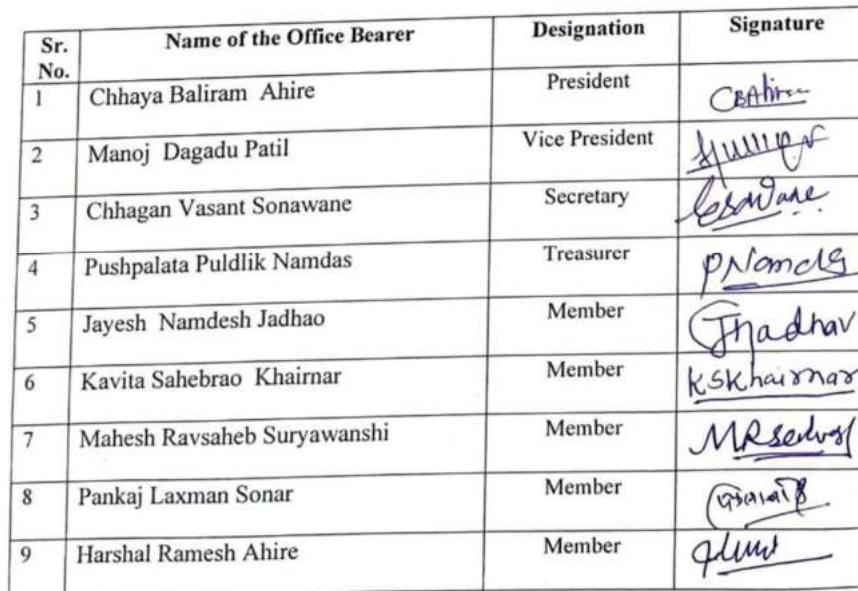 Sr. No. Name of the Office Bearer Designation Signature
1 Chhaya Baliram Ahire President CBAhire
2 Manoj Dagadu Patil Vice President
3 Chhagan Vasant Sonawane Secretary
4 Pushpalata Puldlik Namdas Treasurer PNamds
5 Jayesh Namdesh Jadhao Member Jhadhav
6 Kavita Sahebrao Khairnar Member KSKhairnar
7 Mahesh Ravsaheb Suryawanshi Member
8 Pankaj Laxman Sonar Member
9 Harshal Ramesh Ahire Member